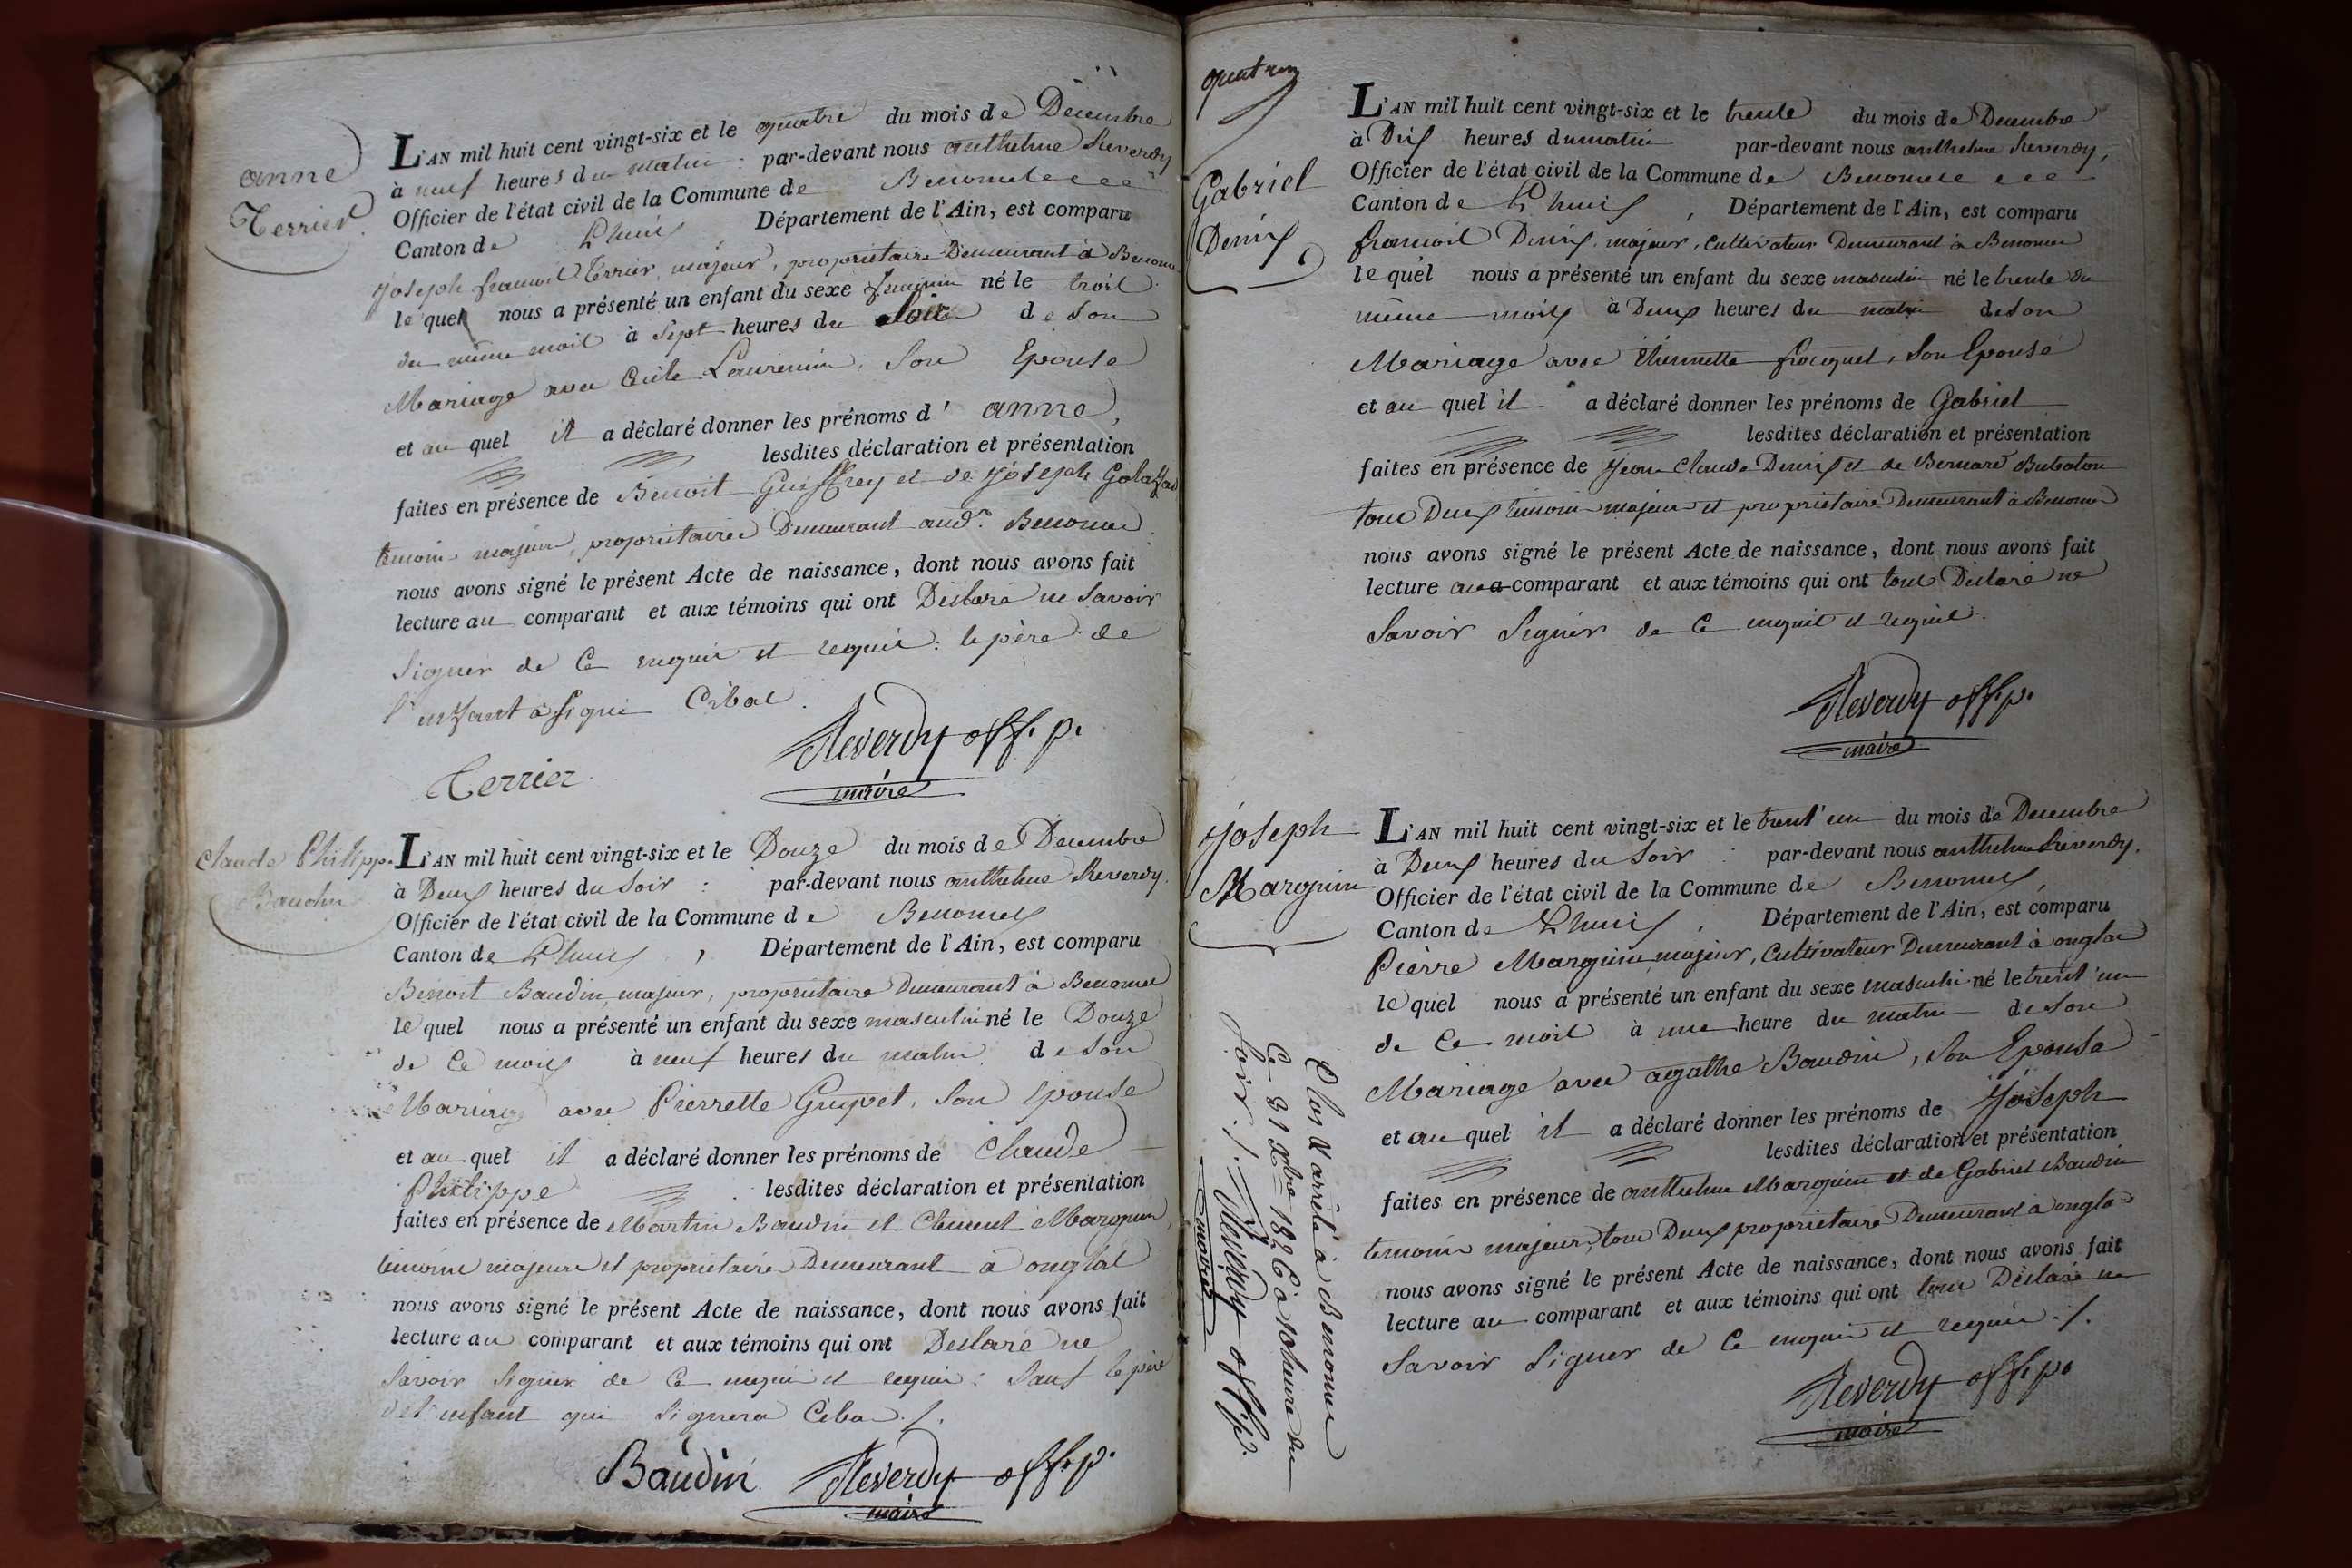 anne
Terrier
L'AN mil huit cent vingt-six et le quatre du mois de Decembre
à neuf heures du matin : par-devant nous anthelme Reverdy
Officier de l'état civil de la Commune de Benonce
Canton de Lhuis Département de l'Ain, est comparu
Joseph francois Terrier, majeur, proprietaire Demeurant à Benonce
le quel nous a présenté un enfant du sexe feminin né le trois
du même mois à Sept heures du Soir de Son
Mariage avec Cécile Laurencin, Son Epouse
et au quel il a déclaré donner les prénoms d' anne,
lesdites déclaration et présentation
faites en présence de Benoit Guiffrey et de Joseph
temoins majeurs, proprietaires Demeurant aud.t Benonce
nous avons signé le présent Acte de naissance, dont nous avons fait
lecture au comparant et aux témoins qui ont Déclaré ne Savoir
Signer de Ce enquis et requis : le père de
l'enfant a Signé Cibas.
Terrier Reverdy off. p.
maire
Claude Philippe
Baudin
L'AN mil huit cent vingt-six et le Douze du mois de Decembre
à Deux heures du Soir : par-devant nous anthelme Reverdy,
Officier de l'état civil de la Commune de Benonces
Canton de Lhuis, Département de l'Ain, est comparu
Benoit Baudin, majeur, proprietaire Demeurant à Benonce
le quel nous a présenté un enfant du sexe masculin né le Douze
de Ce mois à neuf heures du matin de Son
Mariage avec Pierrette Grupet, Son Epouse
et au quel il a déclaré donner les prénoms de Claude
Philippe lesdites déclaration et présentation
faites en présence de Martin Baudin et Clement Marquin
temoins majeurs et proprietaires Demeurant à onglas
nous avons signé le présent Acte de naissance, dont nous avons fait
lecture au comparant et aux témoins qui ont Declaré ne
Savoir Signer de Ce enquis et requis : Sauf le père
de l'enfant qui Signera Cibas ./.
Baudin Reverdy off. p.
maire
Gabriel
Denis
L'AN mil huit cent vingt-six et le trente du mois de Decembre
à Dix heures du matin par-devant nous anthelme Reverdy,
Officier de l'état civil de la Commune de Benonce
Canton de Lhuis, Département de l'Ain, est comparu
francois Denis, majeur, Cultivateur Demeurant à Benonce
le quel nous a présenté un enfant du sexe masculin né le trente du
même mois à Deux heures du matin de Son
Mariage avec Etiennette froquet, Son Epouse
et au quel il a déclaré donner les prénoms de Gabriel
lesdites déclaration et présentation
faites en présence de Jean Claude Denis et de Bernard Buleaton
tous Deux temoins majeurs et proprietaires Demeurant à Benonce
nous avons signé le présent Acte de naissance, dont nous avons fait
lecture au comparant et aux témoins qui ont tous Déclaré ne
Savoir Signer de Ce enquis et requis.
Reverdy off. p.
maire
Joseph
Marquin
L'AN mil huit cent vingt-six et le trent'un du mois de Decembre
à Deux heures du Soir : par-devant nous anthelme Reverdy,
Officier de l'état civil de la Commune de Benonces,
Canton de Lhuis, Département de l'Ain, est comparu
Pierre Marquin, majeur, Cultivateur Demeurant à onglas
le quel nous a présenté un enfant du sexe masculin né le trent'un
de Ce mois à une heure du matin de Son
Mariage avec agathe Baudin, Son Epouse
et au quel il a déclaré donner les prénoms de Joseph
lesdites déclaration et présentation
faites en présence de anthelme Marquin et de Gabriel Baudin
temoins majeurs, tous Deux proprietaires Demeurant à onglas
nous avons signé le présent Acte de naissance, dont nous avons fait
lecture au comparant et aux témoins qui ont tous Déclaré ne
Savoir Signer de Ce enquis et requis ./.
Reverdy off. p.
maire
Clos et arrêté à Benonce
Ce 31 Xbre 1826 à 10 heures du
Soir ./. Reverdy off. p.
maire